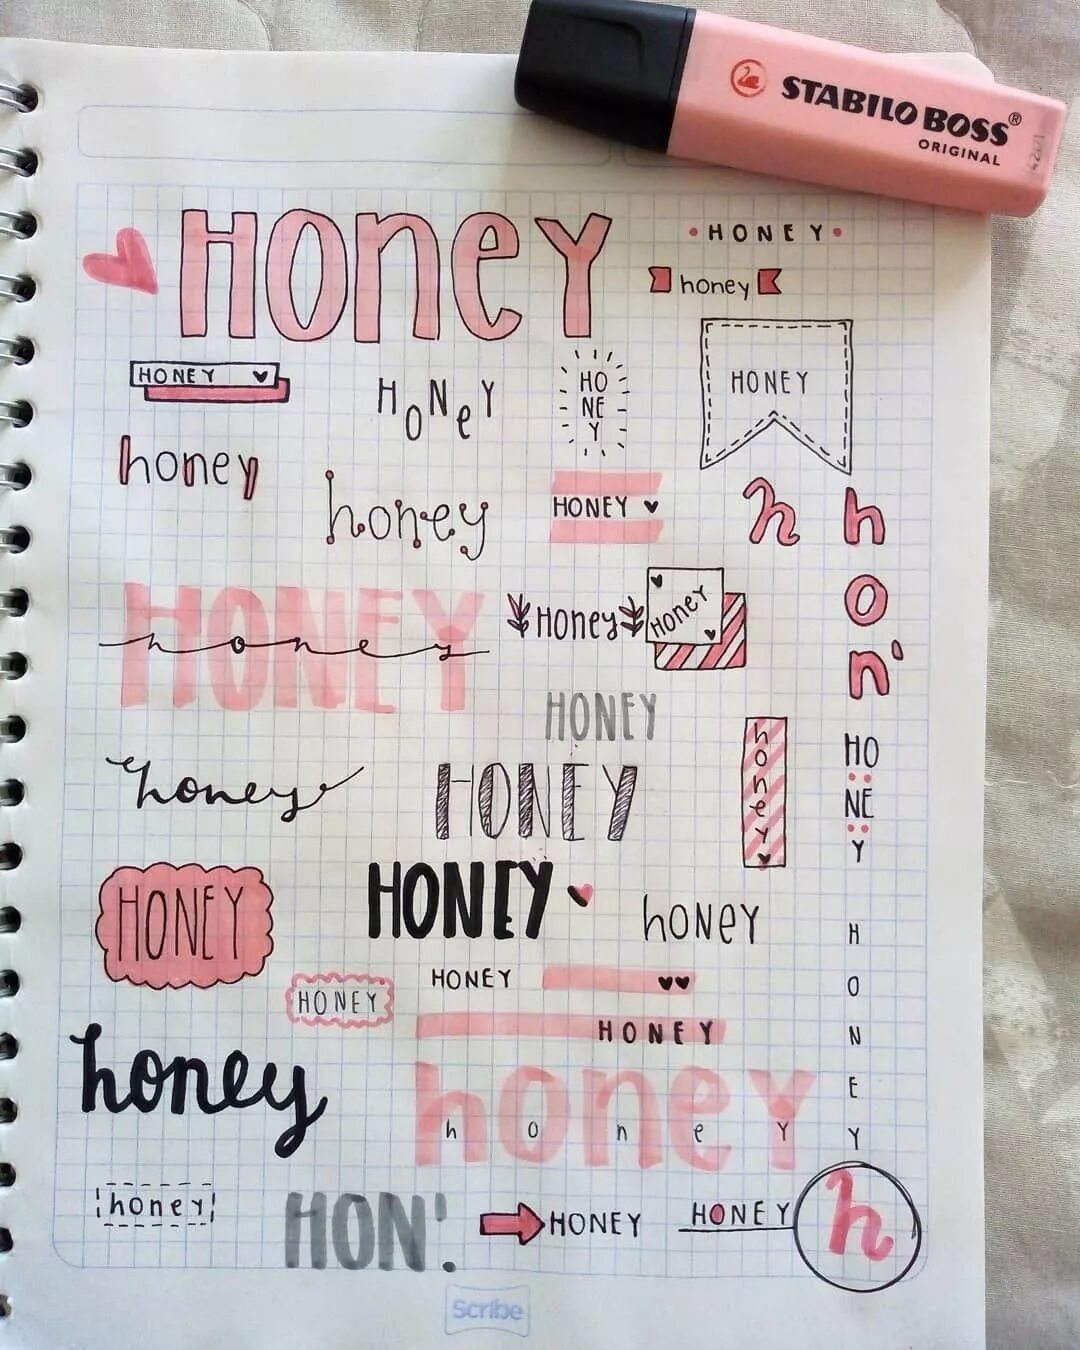 STABILO BOSS®
ORIGINAL
HONEY
HONEY
honey
HONEY
HONEY
HO
NE
Y
HONEY
honey
honey
HONEY
h
h
o
n'
HONEY
honey
Honey
HONEY
HONEY
honey
HO
NE
Y
honey
HONEY
HONEY
HONEY
hONEY
H
O
N
E
Y
HONEY
HONEY
HONEY
honey
honey
h o n e y
honey
HON'.
HONEY
HONEY
h
Scribe